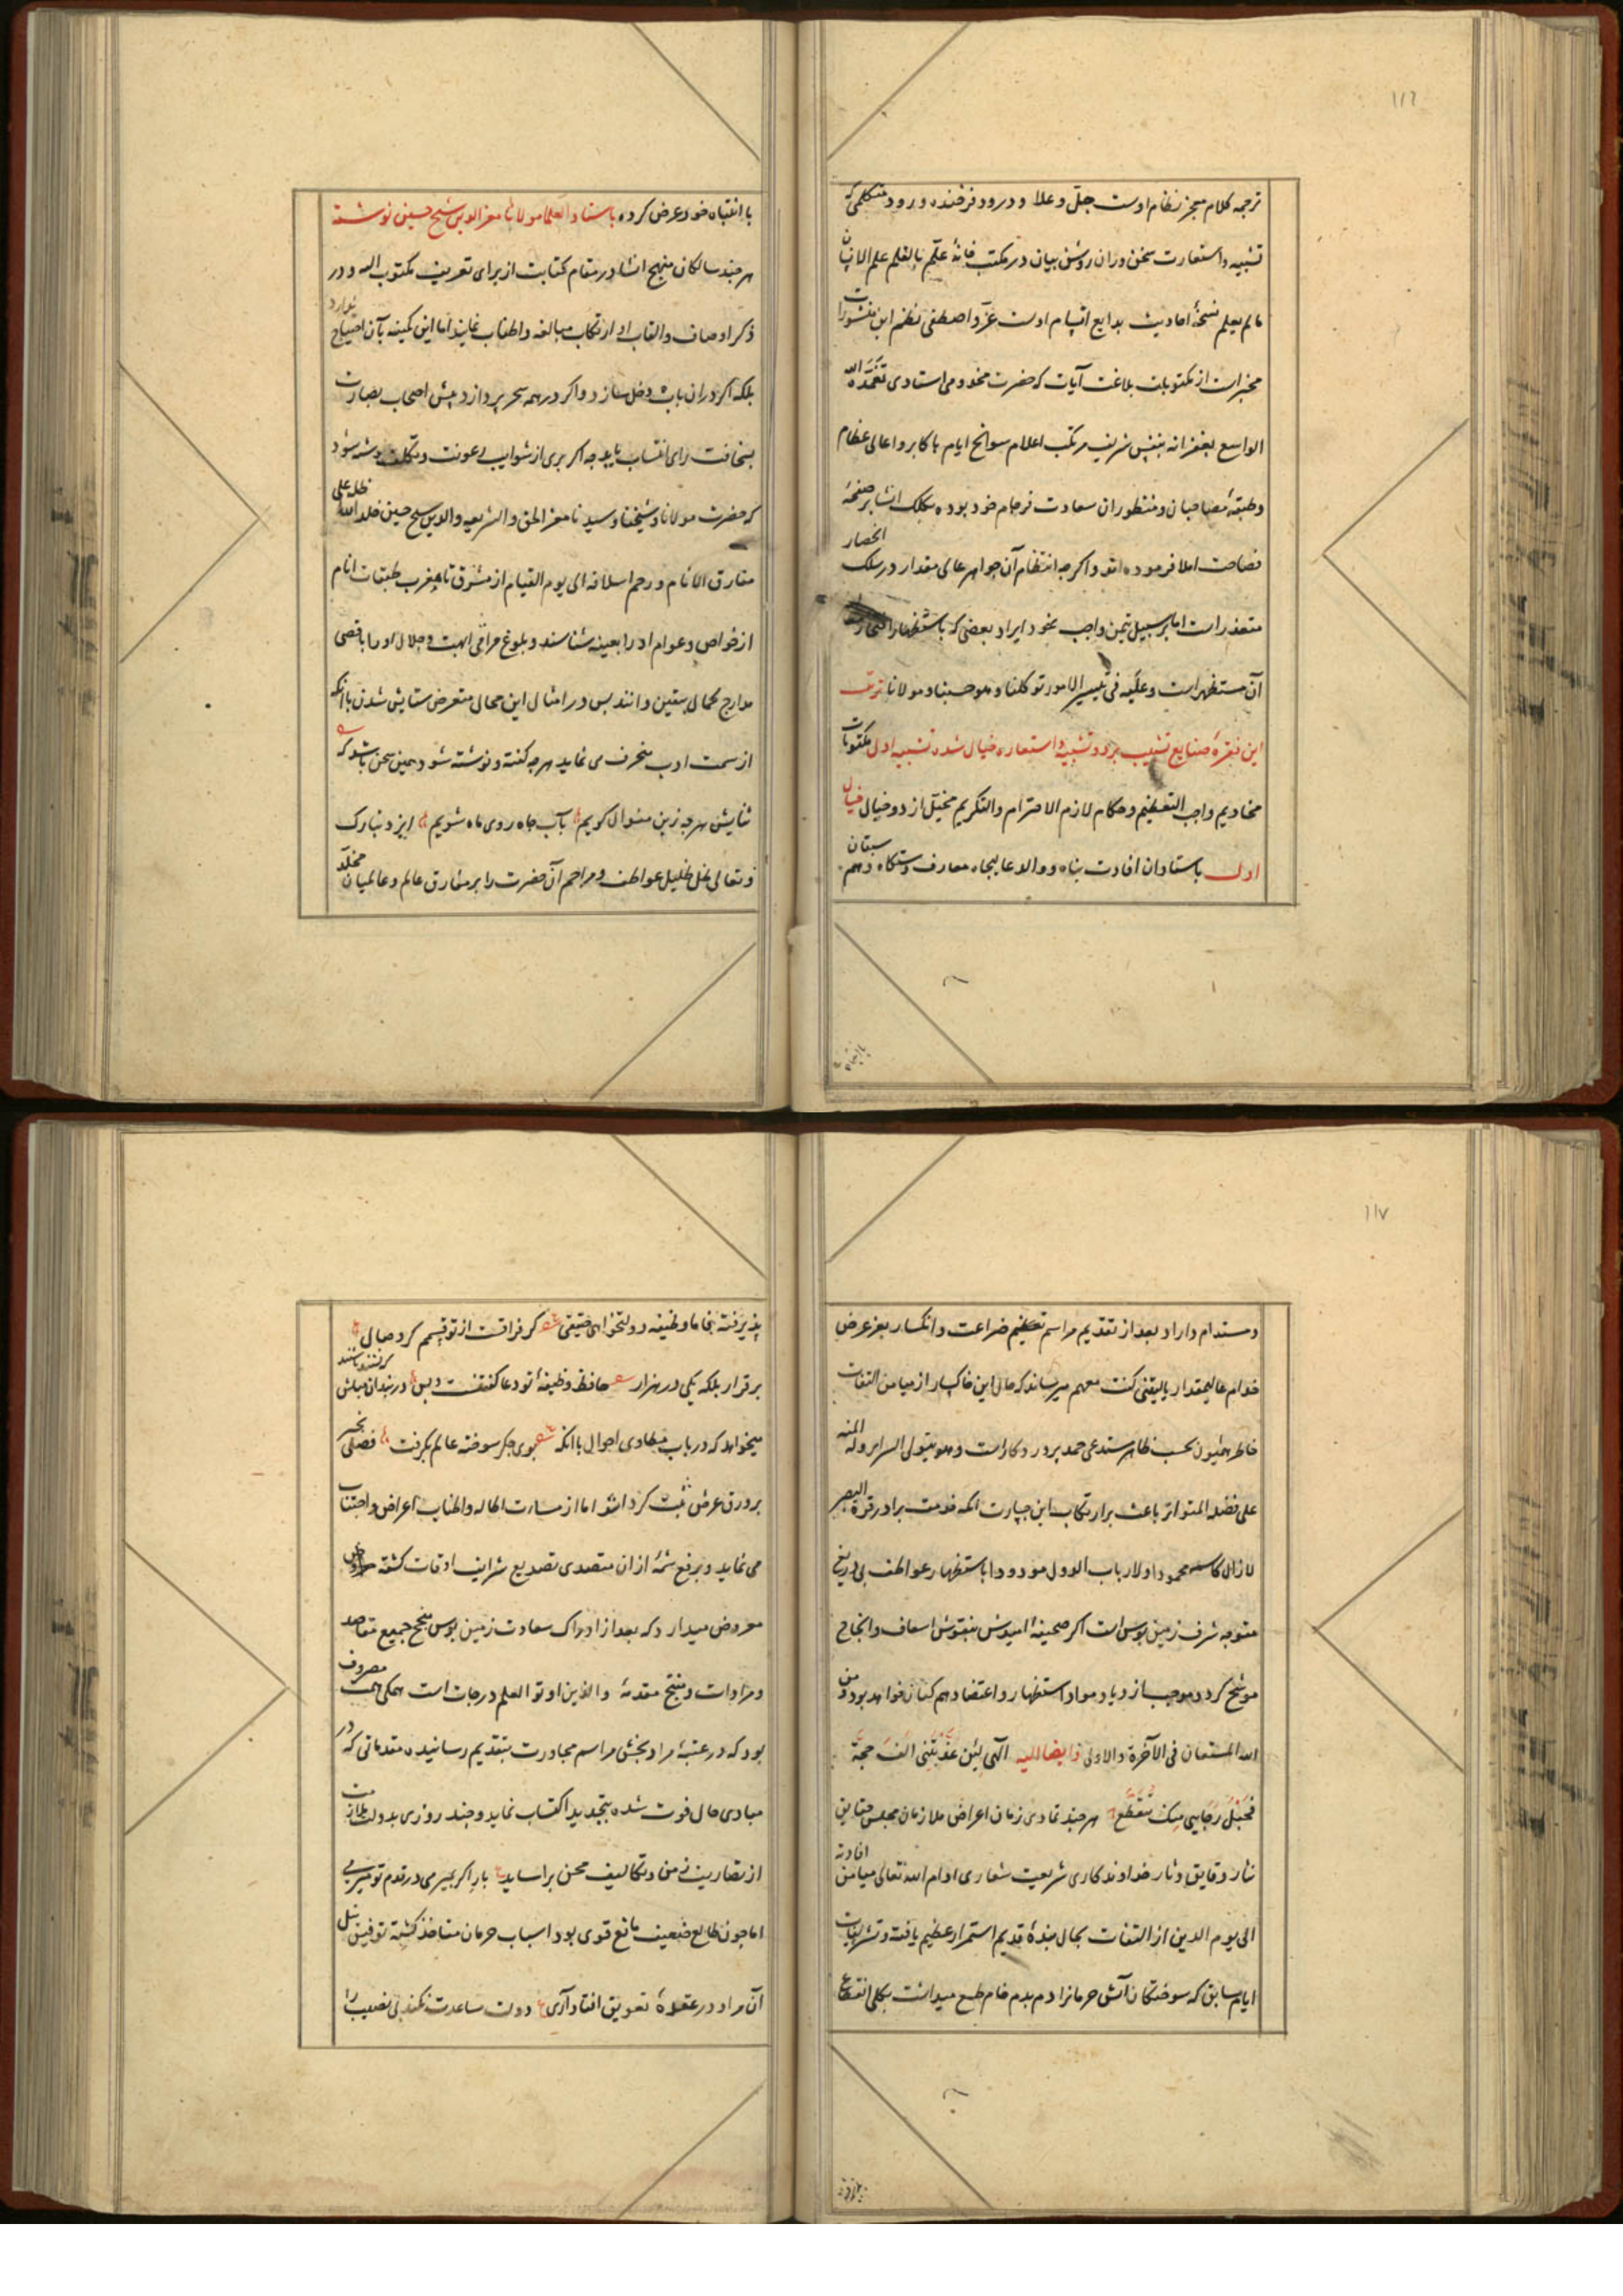 ١١٦
ترجمه کلام معجز نظام اوست جلّ وعلا و درود فرخنده ورود متکلمی که
تشبیه و استعارت سخن وران روشن بیان در مکتب خانهٔ علّم بالقلم علم الانسان
مالم یعلم نسخهٔ احادیث بدایع اتسام اوست عزّ و اصطفی نظم این منشورات
مخبرات از مکتوبات بلاغت آیات که حضرت مخدومی استادی تغمّده الله
الواسع بغفرانه بنفس شریف مرتکب اعلام سوانح ایام باکابر و اعالی عظام
وطبقهٔ مصاحبان و منظوران سعادت فرجام خود بوده بکلک انشا بر صفحهٔ
فصاحت املا فرموده‌اند و اکرچه انتظام آن جواهر عالی مقدار در سلک انحصار
متعذر است اما بر سبیل تیمن واجب نمود ایراد بعضی که باستظهار
آن مستظهر است وعلیه فی تیسیر الامور توکلنا وهو حسبنا ومولانا ترتیب
این فقرهٔ صنایع تشبیب بر دو تشبیه و استعاره خیال شده تشبیه اول مکتوبات
مخادیم واجب التعظیم و حکام لازم الاحترام والتکریم مخیّل از دو خیال خیال
اول باستادان افادت پناه و والد عالیجاه معارف دستکاه و هم سبقان
باانتباه
باانتباه خود عرض کرده باستاد العلما مولانا معزالدین شیخ حسین نوشته
هرچند سالکان منهج انشا در مقام کتابت از برای تعریف مکتوب الیه و در
ذکر اوصاف و القاب او ارتکاب مبالغه و اطناب نمایند اما این کمینه بآن احتیاج ندارد
بلکه اکر در ان باب دخل سازد و اکر در همه سحر پردازد پیش اصحاب بصارت
بسخافت رای انتساب یابد چه اکر بری از شوایب رعونت و تکلف نوشته شود
که حضرت مولانا و شیخنا و سیدنا معز الحق والشریعه والدین شیخ حسین خلد الله ظله علی
مفارق الانام و رحم اسلافه الی یوم القیام از مشرق تا مغرب طبقات انام
از خواص و عوام او را بعینه شناسند و بلوغ مراقی ابهت و جلال او را باقصی
مدارج کمال یقین دانند پس در امثال این محال متعرض ستایش شدن باانکه
از سمت ادب منحرف می نماید هرچه کفته و نوشته شود همین سخن باشد که
ثنایش هرچه زین منوال کویم بآب چاه روی ماه شویم ایزد تبارک
و تعالی ظل ظلیل عواطف و مراحم آن حضرت را بر مفارق عالم و عالمیان مخلّد
١١٧
و مستدام داراد بعد از تقدیم مراسم تعظیم ضراعت و انکسار بعز عرض
خدام عالیمقدار یالیتنی کنت معهم میرساند که حال این خاکسار از میامن التفات
خاطر همایون بحسب ظاهر مستدعی حمد پروردکار است وهو یتولی السرایر وله المنه
علی فضله المتواتر باعث بر ارتکاب این جسارت انکه خدمت برادر قرة البصر
لازال کاسمه محمودا ولارباب الدول مودودا باستظهار عواطف بی دریغ
متوجه شرف زمین بوس است اکر صحیفهٔ امیدش بنقوش اسعاف و انجاح
موشح کردد موجب ازدیاد مواد استظهار و اعتضاد همکنان خواهد بود و من
الله المستعان فی الآخرة والاولی و ایضا الیه الهی لئن عذبتنی الف حجة
فحبل رجایی منک لا یتقطع هرچند تمادی زمان اعراض ملازمان مجلس حقایق
نثار دقایق دثار خداوندکاری شریعت شعاری ادام الله تعالی میامن افادته
الی یوم الدین از التفات بحال بندهٔ قدیم استمرار عظیم یافته و تشریفات
ایام سابق که سوختکان آتش حرمانرا دم بدم خام طمع میداشت بکلی انقطاع
پذیرفته
پذیرفته بنماما وظیفه دولتخواهی حقیقی کر فراقت از تو قسمم کرد و صالی
برقرار بلکه یکی در هزار حافظ وظیفهٔ تو دعا کفتنست و بس در بند ان مباش که نشنید یا شنید
میخواهد که در باب مطاوی احوال باانکه بوی جکر سوخته عالم بکرفت فصلی
بر ورق عرض ثبت کرداند اما از مسارت اطاله و اطناب اعراض و اجتناب
می نماید و برفع شمهٔ از ان متصدی تصدیع شرایف اوقات کشته
معروض میدارد که بعد از ادراک سعادت زمین بوس منجح جمیع مقاصد
و مرادات و منتج مقدمهٔ والذین اوتوا العلم درجات است همکی همت مصروف
بود که در عتبهٔ مراد بخش مراسم مجاورت بتقدیم رسانیده مقدماتی که در
مبادی حال فوت شده بتجدید اکتساب نماید و چند روزی بدولت ملازمت
از تصاریف زمن و تکالیف محن براساید بار اکر بسری در قدم تو میری
اما چون طالع ضعیف مانع قوی بود اسباب حرمان متاخذ کشته توفیق نیل
آن مراد در عقدهٔ تعویق افتاد آری دولت مساعدت نکند بی نصیب را